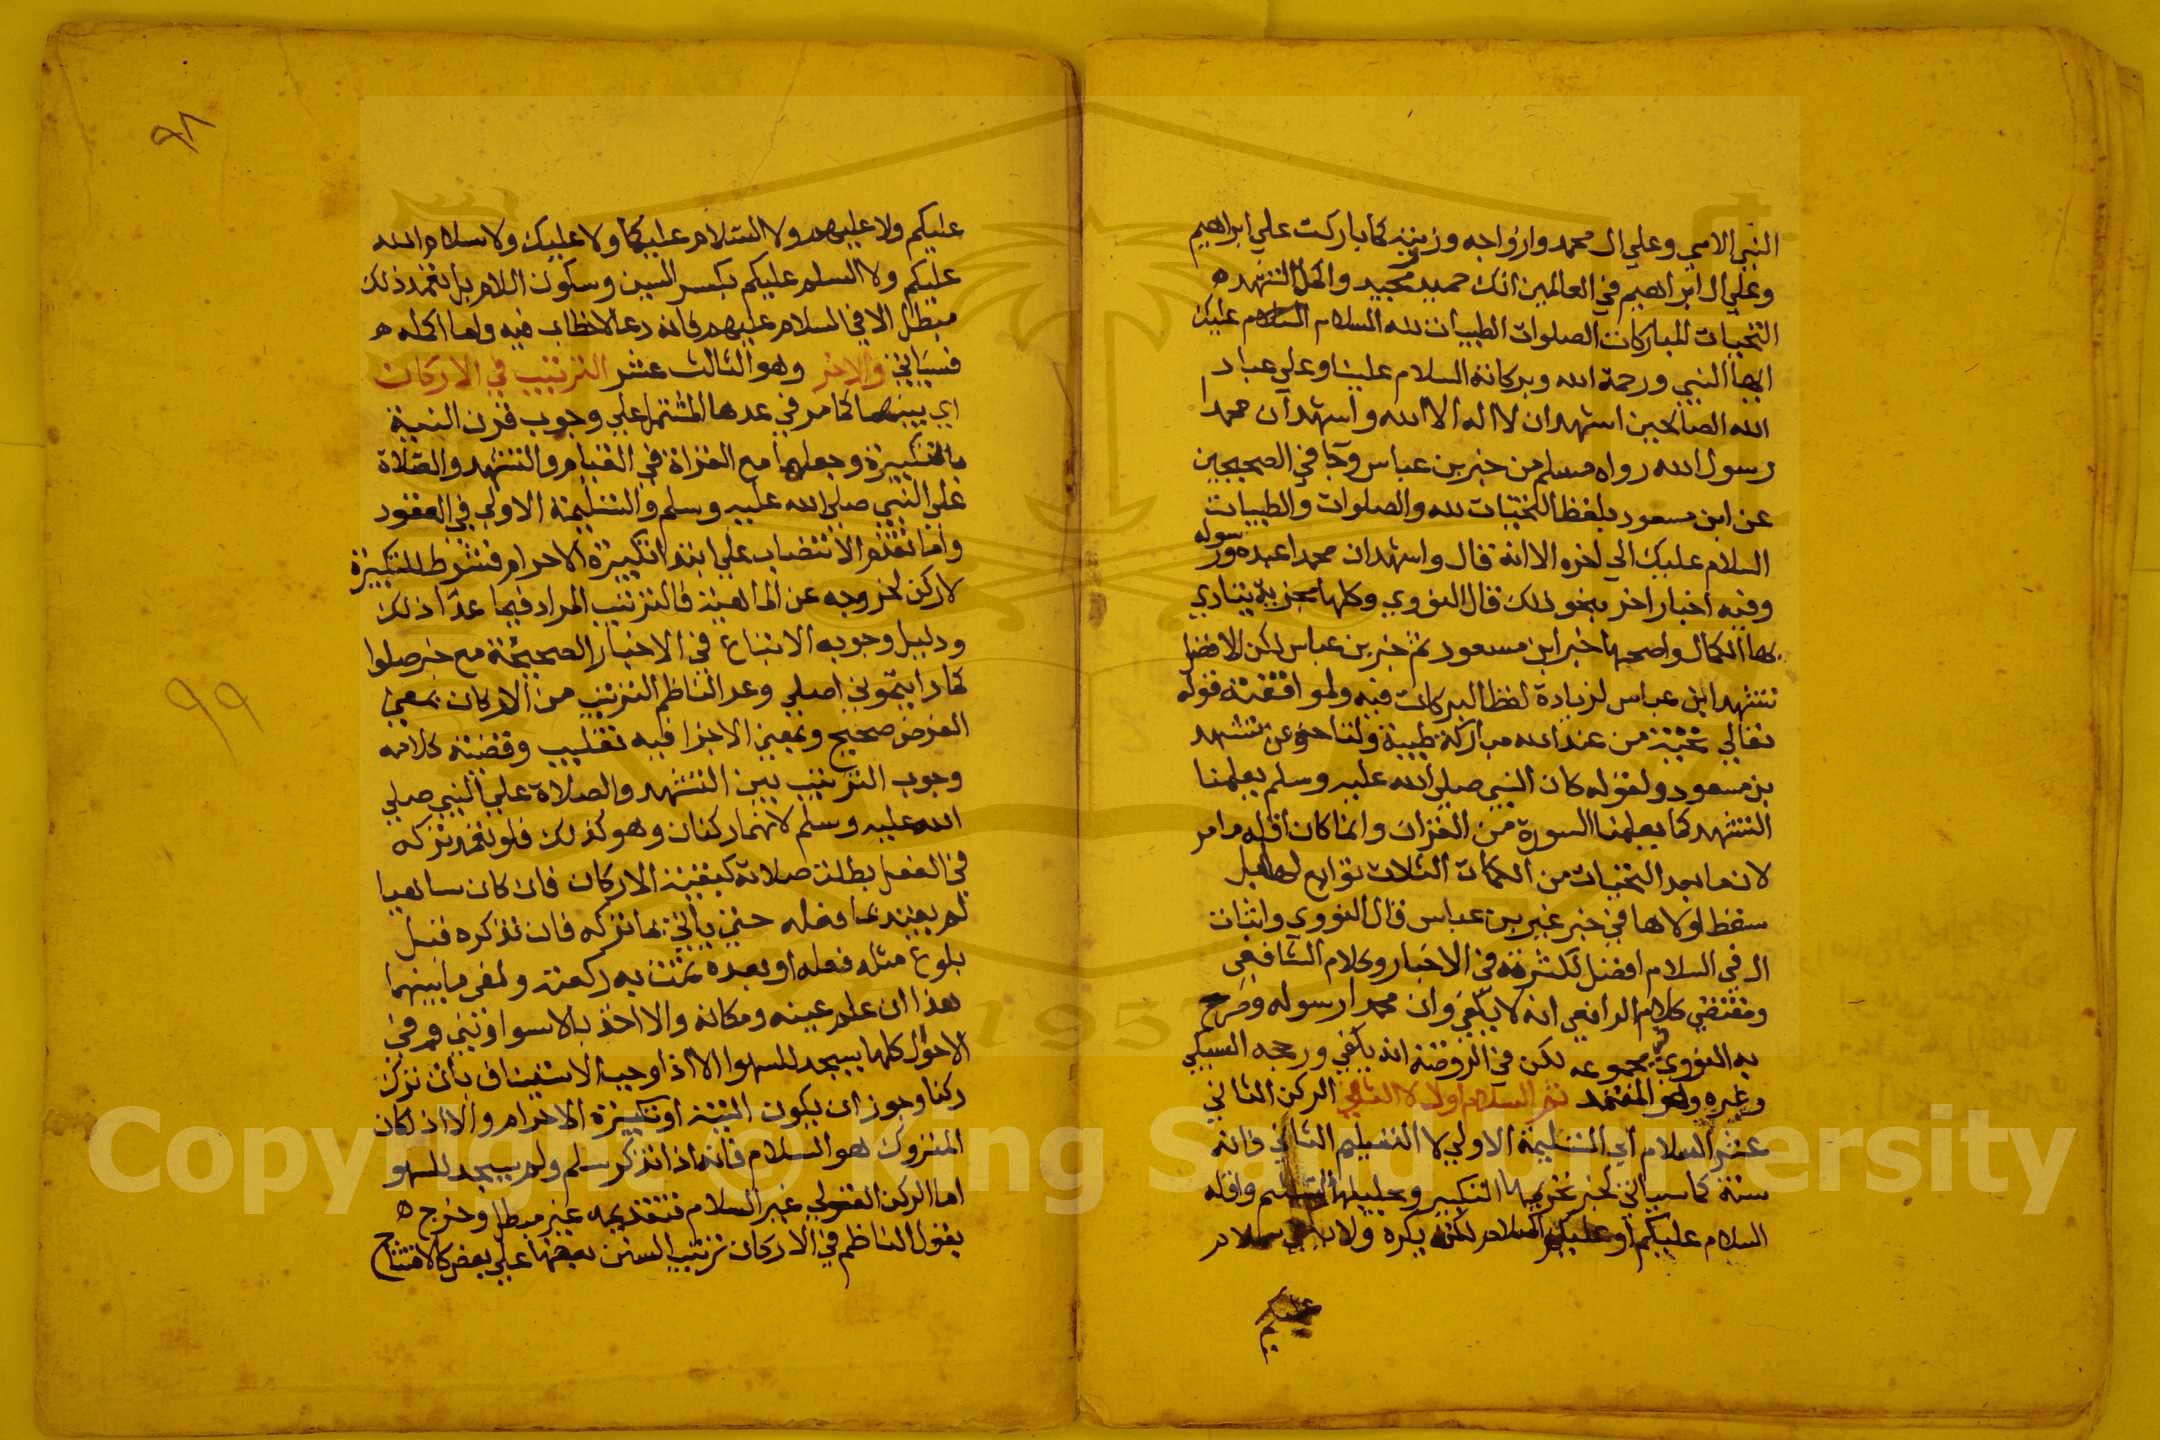 النبي الامي وعلي ال محمد وازواجه وذريته كما باركت علي ابراهيم
وعلي ال ابراهيم في العالمين انك حميد مجيد واكمل التشهد ه
التحيات المباركات الصلوات الطيبات لله السلام السلام عليك
ايها النبي ورحمة الله وبركاته السلام علينا وعلي عباد
الله الصالحين اشهد ان لا اله الا الله واشهد ان محمدا
رسول الله رواه مسلم من خبر بن عباس وجا في الصحيحين
عن ابن مسعود بلفظ التحيات لله والصلوات والطيبات
السلام عليك الي اخره الا انه قال واشهد ان محمدا عبده ورسوله
وفيه اخبار اخر بنحو ذلك قال النووي وكلها مجزية يتادي
بها الكمال واصحها خبر ابن مسعود ثم خبر بن عباس لكن الافضل
تشهد ابن عباس لزيادة لفظ البركات فيه ولموافقته قوله
تعالي تحية من عند الله مباركة طيبة ولتاخره عن تشهد
بن مسعود ولقوله كان النبي صلي الله عليه وسلم يعلمنا
التشهد كما يعلمنا السورة من القران وانما كان اقله ما مر
لان ما بعد التحيات من الكلمات الثلاث توابع لها قيل
سقط اولاها في خبر غير بن عباس قال النووي واثبات
ال في السلام افضل لكثرته في الاخبار وكلام الشافعي
ومقتضي كلام الرافعي انه لا يكفي وان محمدا رسوله وصرح
به النووي في مجموعه لكن في الروضة انه يكفي ورجحه السبكي
وغيره وهو المعتمد ثم السلام اولا لا الثاني الركن الثاني
عشر السلام اي التسليمة الاولي لا التسليم الثاني فانه
سنة كما سياتي لخبر تحريمها التكبير وتحليلها التسليم واقله
السلام عليكم او عليكم السلام لكنه يكره ولا سلام
عليكم
٩٨
عليكم ولا عليهم ولا السلام عليكما ولا عليك ولا سلام الله
عليكم ولا السلم عليكم بكسر السين وسكون اللام بل تعمد ذلك
مبطل الا في السلام عليهم فانه دعا لا خطاب فيه واما اكمله ه
فسياتي والاخر وهو الثالث عشر الترتيب في الاركان
اي بينها كما مر في عدها المشتمل علي وجوب قرن النية
بالتكبيرة وجعلهما مع القراة في القيام والتشهد والصلاة
علي النبي صلي الله عليه وسلم والتسليمة الاولي في القعود
واما تقدم الانتصاب علي ابتدا تكبيرة الاحرام فشرط للتكبيرة
لا ركن لخروجه عن الماهية فالترتيب المراد فيما عدا ذلك
ودليل وجوبه الاتباع في الاخبار الصحيحة مع خبر صلوا
كما رايتموني اصلي وعد الناظم الترتيب من الاركان بمعني
الفرض صحيح وبمعني الاجزا فيه تغليب وقضية كلامه
وجوب الترتيب بين التشهد والصلاة علي النبي صلي
الله عليه وسلم لانهما ركنان وهو كذلك فلو تعمد تركه
في الفعل بطلت صلاته كبقية الاركان فان كان ساهيا
لم يعتد بما فعله حتي ياتي بما تركه فان تذكره قبل
بلوغ مثله فعله او بعده تمت به ركعته ولغي ما بينهما
هذا ان علم عينه ومكانه والا اخذ بالاسوا وبني وفي
الاحوال كلها يسجد للسهو الا اذا وجب الاستيناف بان ترك
ركنا وجوز ان يكون النية او تكبيرة الاحرام والا اذ كان
المتروك هو السلام فانه اذا تذكر سلم ولم يسجد للسهو
اما الركن القولي غير السلام فتقديمه غير مبطل وخرج ه
بقول الناظم في الاركان ترتيب السنن بعضها علي بعض كالافتتاح
٩٩